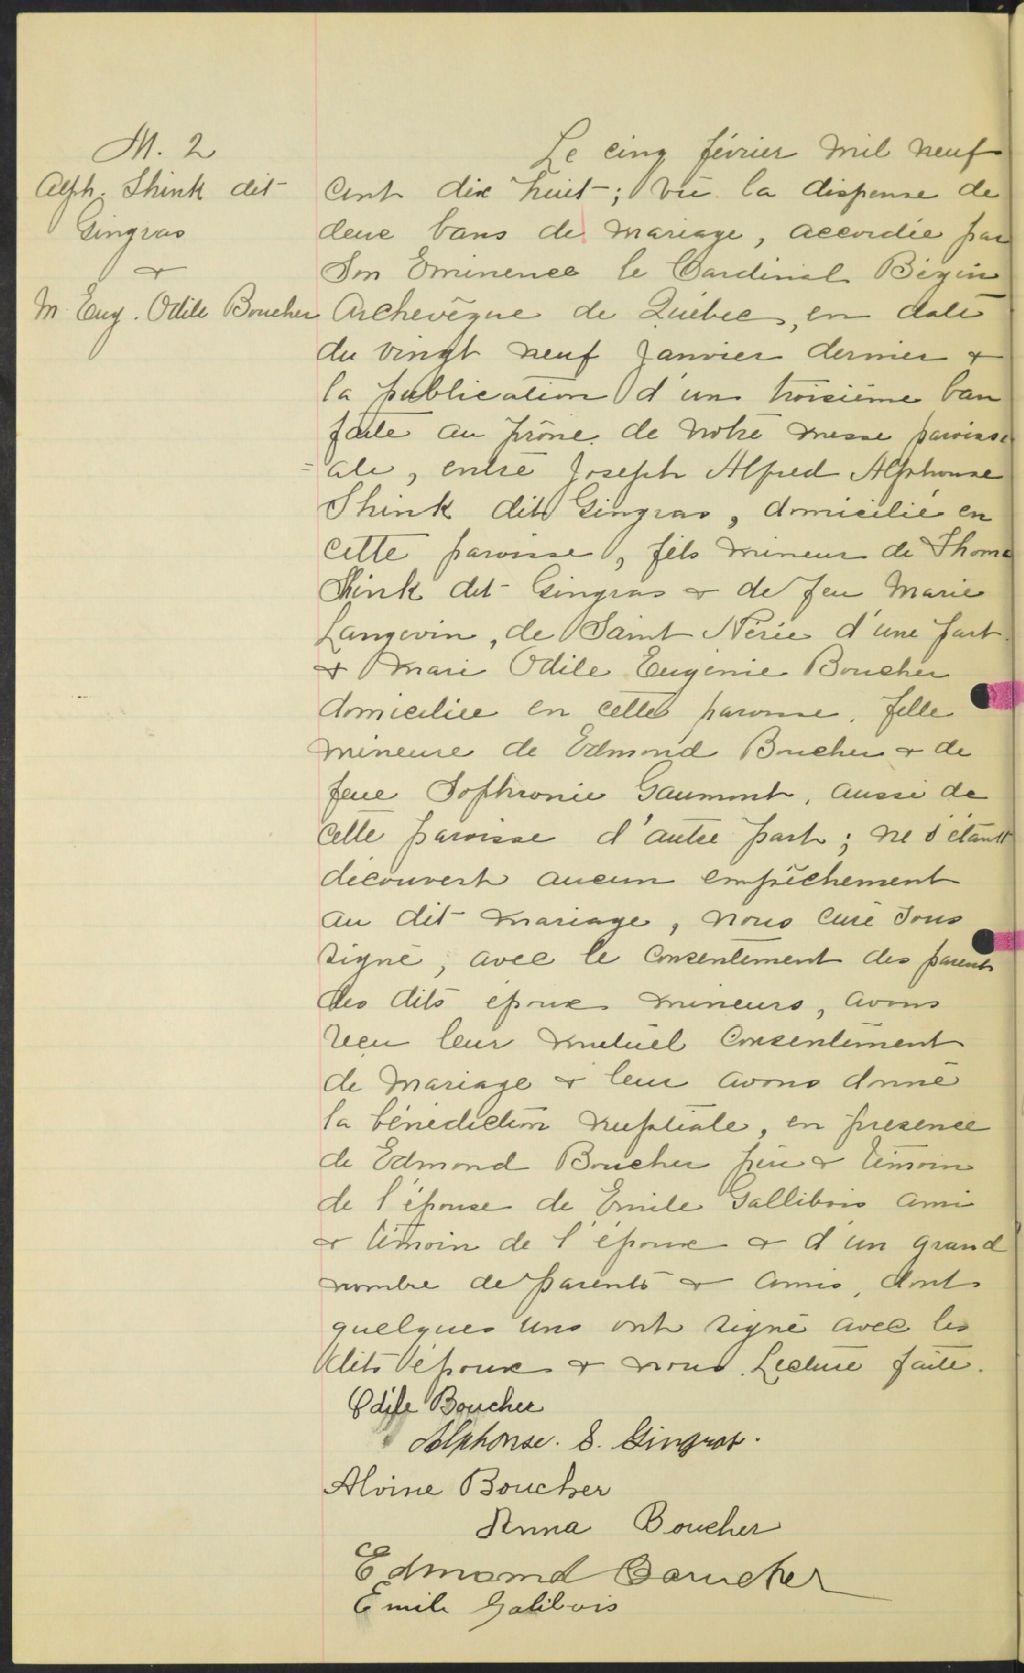 M. 2
Alph. Shink dit
Gingras
&
M. Eug. Odile Boucher
Le cinq février mil neuf
cent dix huit ; vu la dispense de
deux bans de mariage, accordée par
Son Eminence le Cardinal Bégin
Archevêque de Québec, en date
du vingt neuf janvier dernier &
la publication d'un troisième ban
faite au prône de notre messe paroissi
= ale, entre Joseph Alfred Alphonse
Shink dit Gingras, domicilié en
cette paroisse, fils mineur de Thomas
Shink dit Gingras & de feu Marie
Langevin, de Saint Nérée d'une part
& Marie Odile Eugénie Boucher
domiciliée en cette paroisse, fille
mineure de Edmond Boucher & de
feue Sophronie Gaumont, aussi de
cette paroisse d'autre part ; ne s'étant
découvert aucun empêchement
au dit mariage, nous curé sous
signé, avec le consentement des parents
des dits époux mineurs, avons
reçu leur mutuel consentement
de mariage & leur avons donné
la bénédiction nuptiale, en presence
de Edmond Boucher père & témoin
de l'épouse de Emile Gallibois ami
& témoin de l'époux & d'un grand
nombre de parents & amis, dont
quelques uns ont signé avec les
dits époux & nous. Lecture faite.
Odile Boucher
Alphonse. S. Gingras.
Alvine Boucher
Anna Boucher
Edmond Boucher
Emile Galibois